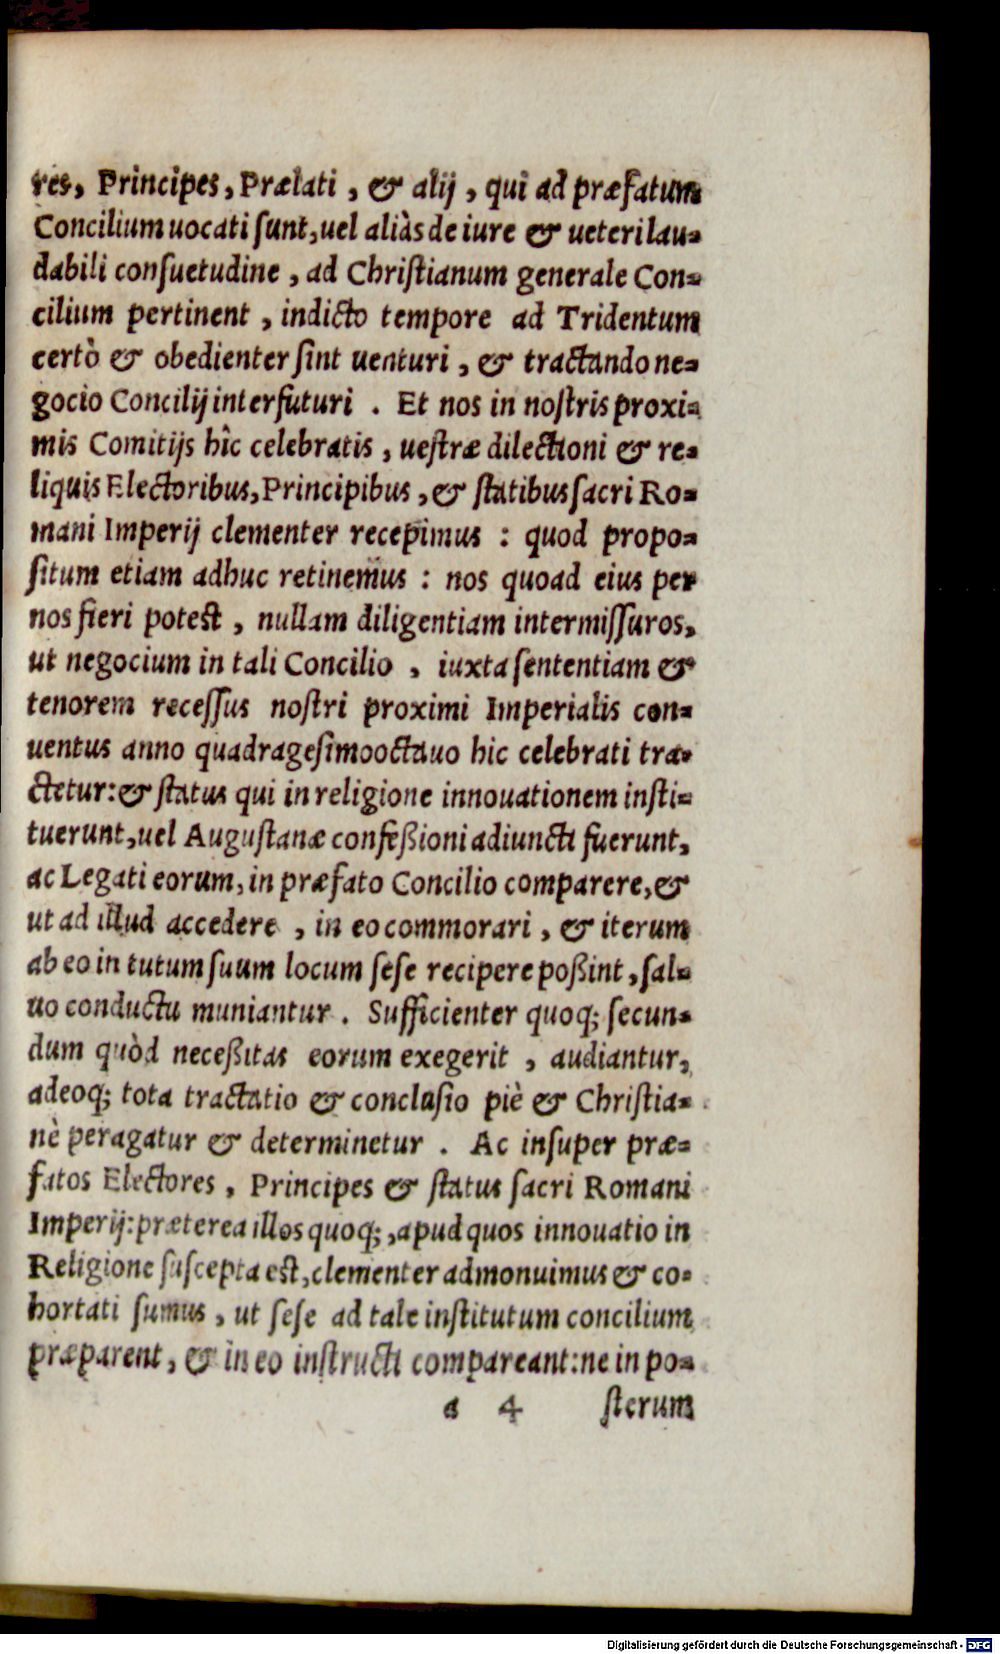 res, Principes, Prælati, & alij, qui ad præfatum
Concilium uocati ſunt, uel aliàs de iure & ueteri lau-
dabili conſuetudine, ad Chriſtianum generale Con-
cilium pertinent, indicto tempore ad Tridentum
certò & obedienter ſint uenturi, & tractando ne-
gocio Concilij interfuturi. Et nos in noſtris proxi-
mis Comitijs hîc celebratis, ueſtræ dilectioni & re-
liquis Electoribus, Principibus, & ſtatibus ſacri Ro-
mani Imperij clementer recepimus: quod propo-
ſitum etiam adhuc retinemus: nos quoad eius per
nos fieri poteſt, nullam diligentiam intermiſſuros,
ut negocium in tali Concilio, iuxta ſententiam &
tenorem receſſus noſtri proximi Imperialis con-
uentus anno quadrageſimooctauo hic celebrati tra-
ctetur: & ſtatus qui in religione innouationem inſti-
tuerunt, uel Auguſtanæ confeßioni adiuncti fuerunt,
ac Legati eorum, in præfato Concilio comparere, &
ut ad illud accedere, in eo commorari, & iterum
ab eo in tutum ſuum locum ſeſe recipere poßint, ſal-
uo conductu muniantur. Sufficienter quoq; ſecun-
dum quòd neceßitas eorum exegerit, audiantur,
adeoq; tota tractatio & concluſio piè & Chriſtia-
nè peragatur & determinetur. Ac inſuper præ-
fatos Electores, Principes & ſtatus ſacri Romani
Imperij: præterea illos quoq;, apud quos innouatio in
Religione ſuſcepta eſt, clementer admonuimus & co-
hortati ſumus, ut ſeſe ad tale inſtitutum concilium
præparent, & in eo inſtructi compareant: ne in po-
a 4 ſterum
Digitalisierung gefördert durch die Deutsche Forschungsgemeinschaft - DFG